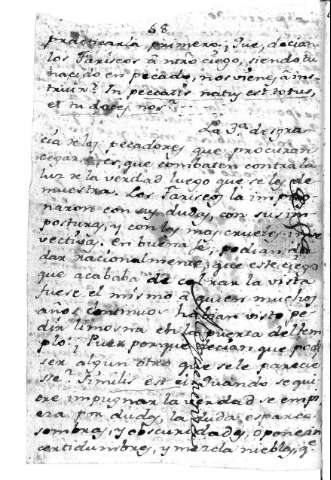 68
practicaria primero; Que, decian
los Fariseos â ntro ciego, siendo tu
nacido en pecado, nos vienes â ins-
truir? In peccatis natus est totus,
et tu doces nos?
La 3ª desgra-
cia de los pecadores que procuran
cegarse, es, que combaten contra la
luz de la verdad luego que se les de
muestra. Los Fariseos la impug
naron con sus dudas, con sus im
posturas, y con las mas crueles in
vectivas. en buena fe, podian du
dar racionalmente, que este ciego
que acababa de cobrar la vista
fuese el mismo â quien muchos
años continuos habian visto pe
dir limosna en la puerta del tem
plo? Pues porque decian que podia
ser algun otro que se le parecie
sse? Similis est ei. Quando se qui
ere impugnar la verdad se emp
era por dudas, las dudas esparcen
sombras, y obscuridades, oponen in
certidumbres, y mezcla nieblas, qe